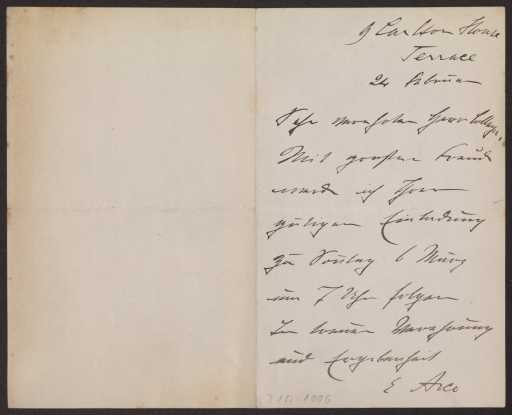 9 Carlton House
Terrace
24 Februar
Sehr verehrter Herr College,
Mit grosser Freude
werde ich Ihrer
gütigen Einladung
zu Sontag 6 März
um 7 Uhr folgen
In treuer Verehrung
und Ergebenheit
E Arco